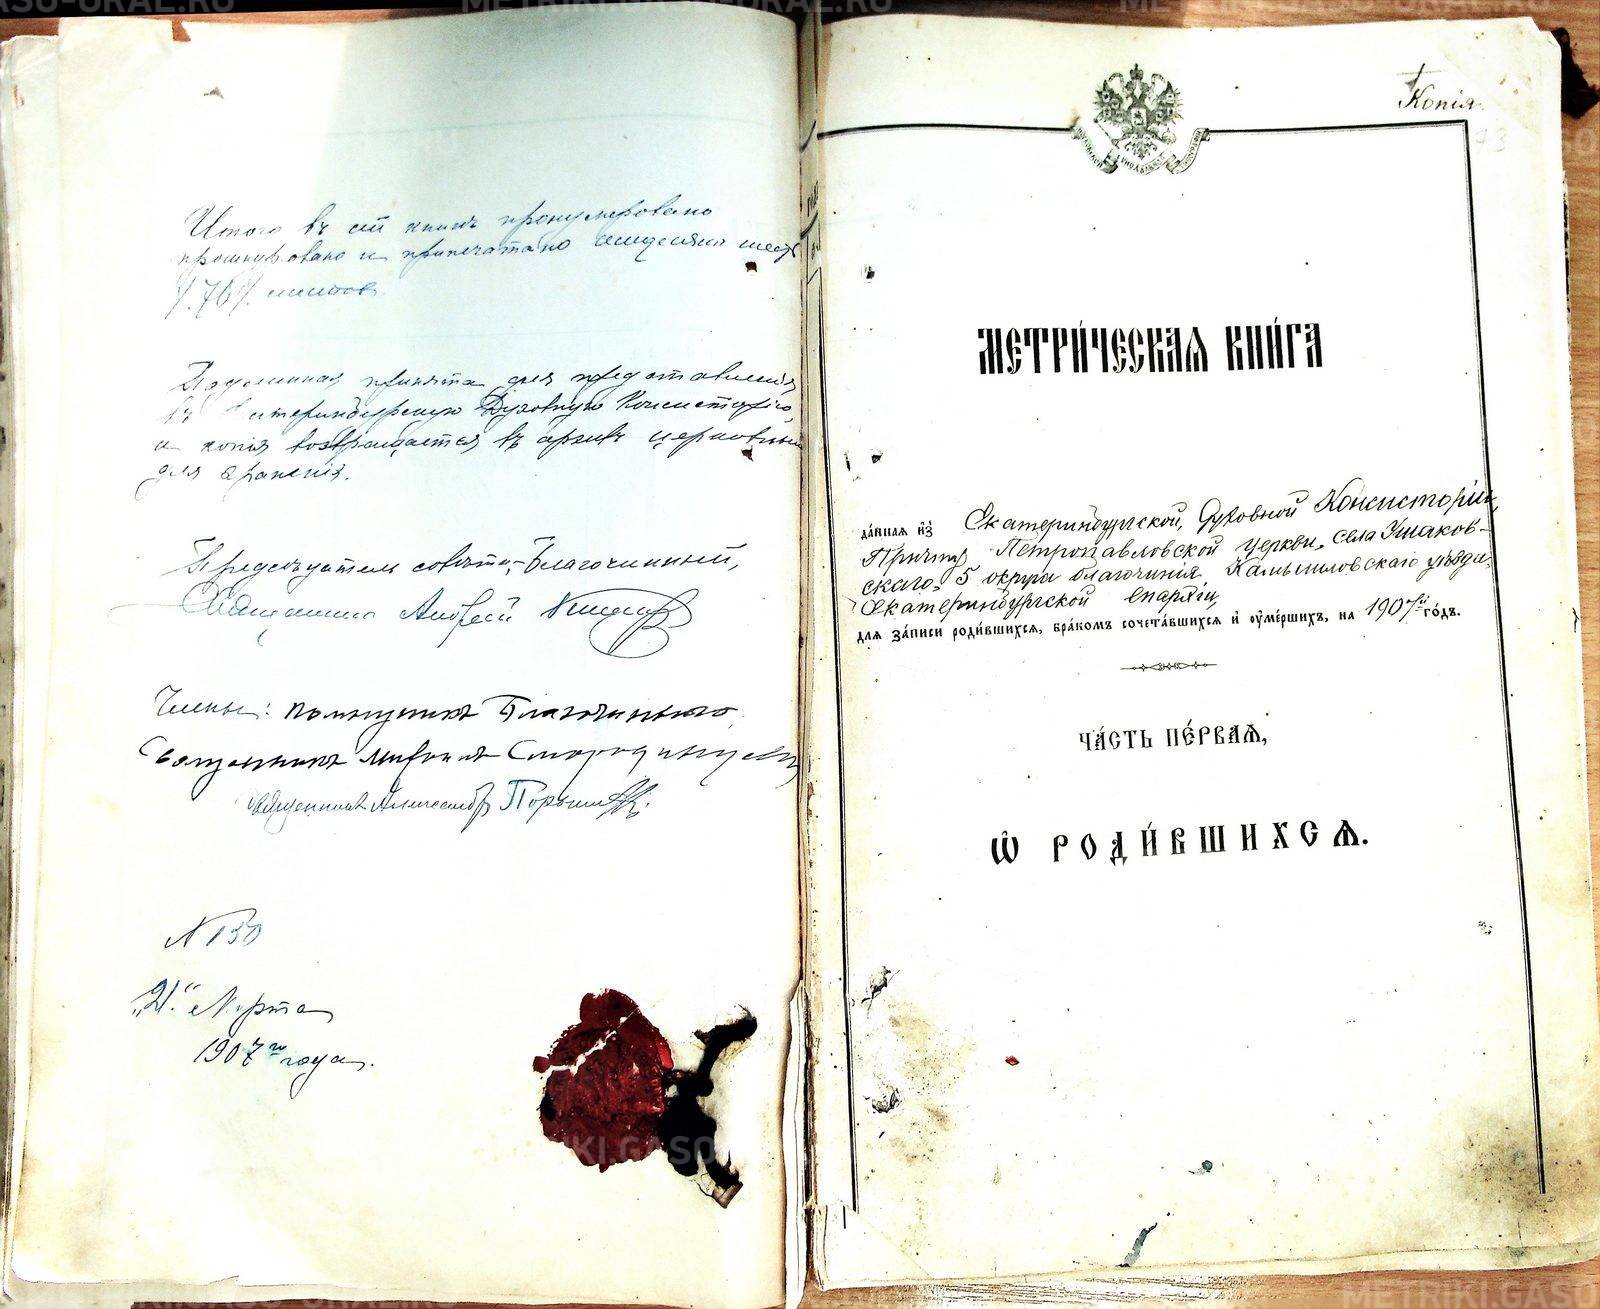 Итого въ сей книгѣ пронумеровано
прошнуровано и припечатано семьдесятъ шесть
/.76/. листовъ
Подлинная принята для представленія
въ Екатеринбургскую Духовную Консисторію,
а копія возвращается въ архивъ церковный
для храненія.
Предсѣдатель совѣта, Благочинный,
Священникъ Андрей
Члены: помощникъ Благочиннаго,
Священникъ Смородинцевъ
Священникъ Александръ
N 130
„21.“ Марта
1907 го года.
Копія
МЕТРИ́ЧЕСКАѦ КНИ́ГА
да́ннаѧ и҆з̾ Екатеринбургской, Духовной Консисторіи,
Причту Петропавловской церкви, села Ушаков-
скаго 5 округа благочинія, Камышловскаго уѣзда,
Екатеринбургской епархіи,
длѧ за́писи роди́вшихсѧ, бра́комъ сочета́вшихсѧ и҆ ᲂу҆ме́ршихъ, на 1907й го́дъ.
ЧА́СТЬ ПЕ́РВАѦ,
Ѽ РОДИ́ВШИХСѦ.
METRIKI.GASO-URAL.RU